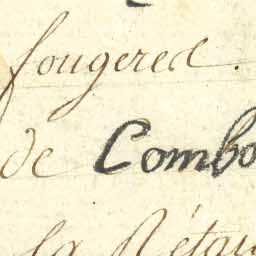 fougeres.
de Combo
la Rétau